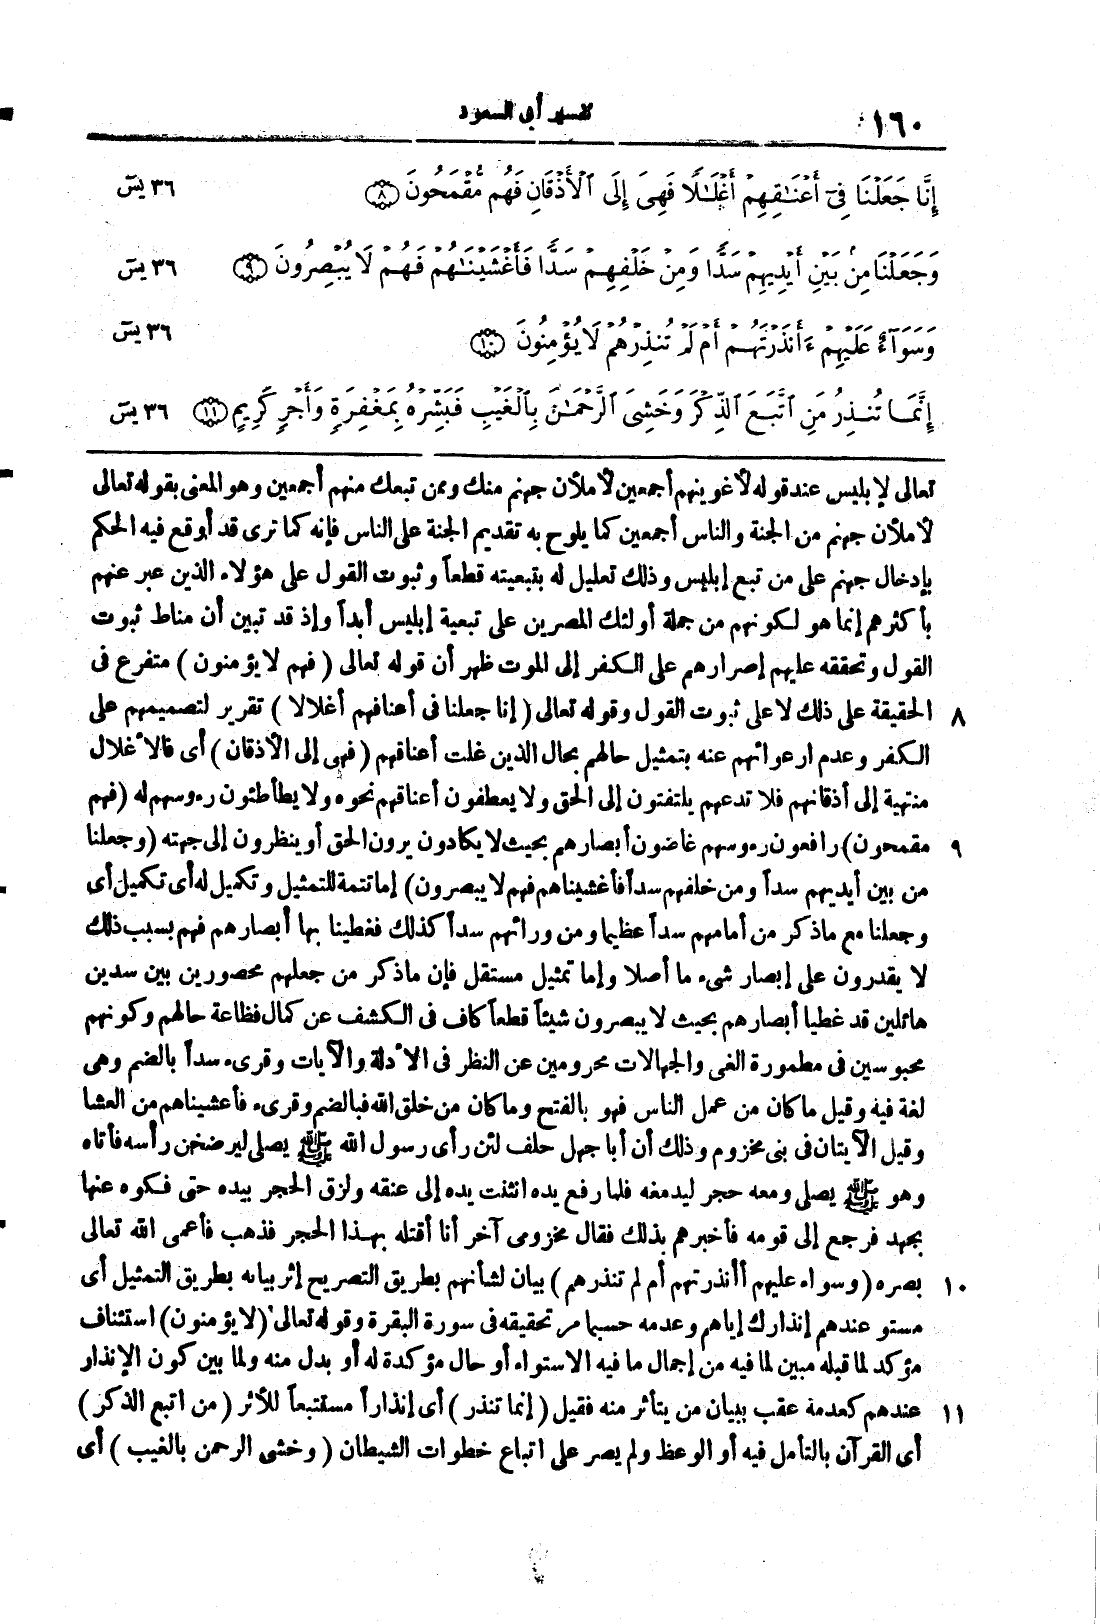 ١٦٠ تفسير أبي السعود
إِنَّا جَعَلْنَا فِىٓ أَعْنَـٰقِهِمْ أَغْلَـٰلًا فَهِىَ إِلَى ٱلْأَذْقَانِ فَهُم مُّقْمَحُونَ ﴿٨﴾ ٣٦ يسٓ
وَجَعَلْنَا مِنۢ بَيْنِ أَيْدِيهِمْ سَدًّا وَمِنْ خَلْفِهِمْ سَدًّا فَأَغْشَيْنَـٰهُمْ فَهُمْ لَا يُبْصِرُونَ ﴿٩﴾ ٣٦ يسٓ
وَسَوَآءٌ عَلَيْهِمْ ءَأَنذَرْتَهُمْ أَمْ لَمْ تُنذِرْهُمْ لَا يُؤْمِنُونَ ﴿١٠﴾ ٣٦ يسٓ
إِنَّمَا تُنذِرُ مَنِ ٱتَّبَعَ ٱلذِّكْرَ وَخَشِىَ ٱلرَّحْمَـٰنَ بِٱلْغَيْبِ فَبَشِّرْهُ بِمَغْفِرَةٍ وَأَجْرٍ كَرِيمٍ ﴿١١﴾ ٣٦ يسٓ
تعالى لإبليس عند قوله لأغوينهم أجمعين لأملأن جهنم منك وممن تبعك منهم أجمعين وهو المعنى بقوله تعالى
لأملأن جهنم من الجنة والناس أجمعين كما يلوح به تقديم الجنة على الناس فإنه كما ترى قد أوقع فيه الحكم
بإدخال جهنم على من تبع إبليس وذلك تعليل له بتبعيته قطعاً وثبوت القول على هؤلاء الذين عبر عنهم
بأكثرهم إنما هو لكونهم من جملة أولئك المصرين على تبعية إبليس أبداً وإذ قد تبين أن مناط ثبوت
القول وتحققه عليهم إصرارهم على الكفر إلى الموت ظهر أن قوله تعالى ( فهم لا يؤمنون ) متفرع فى
٨ الحقيقة على ذلك لا على ثبوت القول وقوله تعالى ( إنا جعلنا فى أعناقهم أغلالا ) تقرير لتصميمهم على
الكفر وعدم ارعوائهم عنه بتمثيل حالهم بحال الذين غلت أعناقهم ( فهى إلى الأذقان ) أى فالأغلال
منتهية إلى أذقانهم فلا تدعهم يلتفتون إلى الحق ولا يعطفون أعناقهم نحوه ولا يطأطئون رءوسهم له ( فهم
٩ مقمحون ) رافعون رءوسهم غاضون أبصارهم بحيث لا يكادون يرون الحق أو ينظرون إلى جهته ( وجعلنا
من بين أيديهم سداً ومن خلفهم سداً فأغشيناهم فهم لا يبصرون ) إما تتمة للتمثيل وتكميل له أى تكميل أى
وجعلنا مع ما ذكر من أمامهم سداً عظيما ومن ورائهم سداً كذلك فغطينا بها أبصارهم فهم بسبب ذلك
لا يقدرون على إبصار شىء ما أصلا وإما تمثيل مستقل فإن ما ذكر من جعلهم محصورين بين سدين
هائلين قد غطيا أبصارهم بحيث لا يبصرون شيئاً قطعاً كاف فى الكشف عن كمال فظاعة حالهم وكونهم
محبوسين فى مطمورة الغى والجهالات محرومين عن النظر فى الأدلة والآيات وقرىء سداً بالضم وهى
لغة فيه وقيل ما كان من عمل الناس فهو بالفتح وما كان من خلق الله فبالضم وقرىء فأعشيناهم من العشا
وقيل الآيتان فى بنى مخزوم وذلك أن أبا جهل حلف لئن رأى رسول الله ﷺ يصلى ليرضخن رأسه فأتاه
وهو ﷺ يصلى ومعه حجر ليدمغه فلما رفع يده انثنت يده إلى عنقه ولزق الحجر بيده حتى فكوه عنها
بجهد فرجع إلى قومه فأخبرهم بذلك فقال مخزومى آخر أنا أقتله بهذا الحجر فذهب فأعمى الله تعالى
١٠ بصره ( وسواء عليهم أأنذرتهم أم لم تنذرهم ) بيان لشأنهم بطريق التصريح إثر بيانه بطريق التمثيل أى
مستو عندهم إنذارك إياهم وعدمه حسبما مر تحقيقه فى سورة البقرة وقوله تعالى ( لا يؤمنون ) استئناف
مؤكد لما قبله مبين لما فيه من إجمال ما فيه الاستواء أو حال مؤكدة له أو بدل منه ولما بين كون الإنذار
١١ عندهم كعدمه عقب ببيان من يتأثر منه فقيل ( إنما تنذر ) أى إنذاراً مستتبعاً للأثر ( من اتبع الذكر )
أى القرآن بالتأمل فيه أو الوعظ ولم يصر على اتباع خطوات الشيطان ( وخشى الرحمن بالغيب ) أى